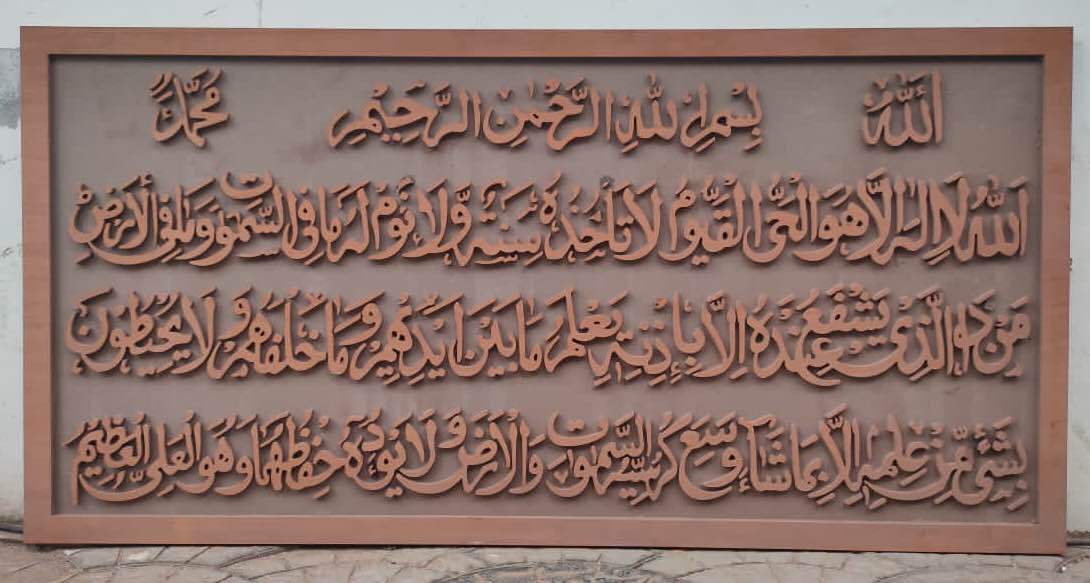 الله بِسْمِ اللهِ الرَّحْمٰنِ الرَّحِيْمِ مُحَمَّدٌ
اَللهُ لَا اِلٰهَ اِلَّا هُوَ الْحَيُّ الْقَيُّوْمُ لَا تَأْخُذُهُ سِنَةٌ وَّلَا نَوْمٌ لَهُ مَا فِى السَّمٰوٰتِ وَمَا فِى الْاَرْضِ
مَنْ ذَا الَّذِىْ يَشْفَعُ عِنْدَهُ اِلَّا بِاِذْنِهٖ يَعْلَمُ مَا بَيْنَ اَيْدِيْهِمْ وَمَا خَلْفَهُمْ وَلَا يُحِيْطُوْنَ
بِشَىْءٍ مِّنْ عِلْمِهٖ اِلَّا بِمَا شَآءَ وَسِعَ كُرْسِيُّهُ السَّمٰوٰتِ وَالْاَرْضَ وَلَا يَؤُدُهٗ حِفْظُهُمَا وَهُوَ الْعَلِىُّ الْعَظِيْمُ